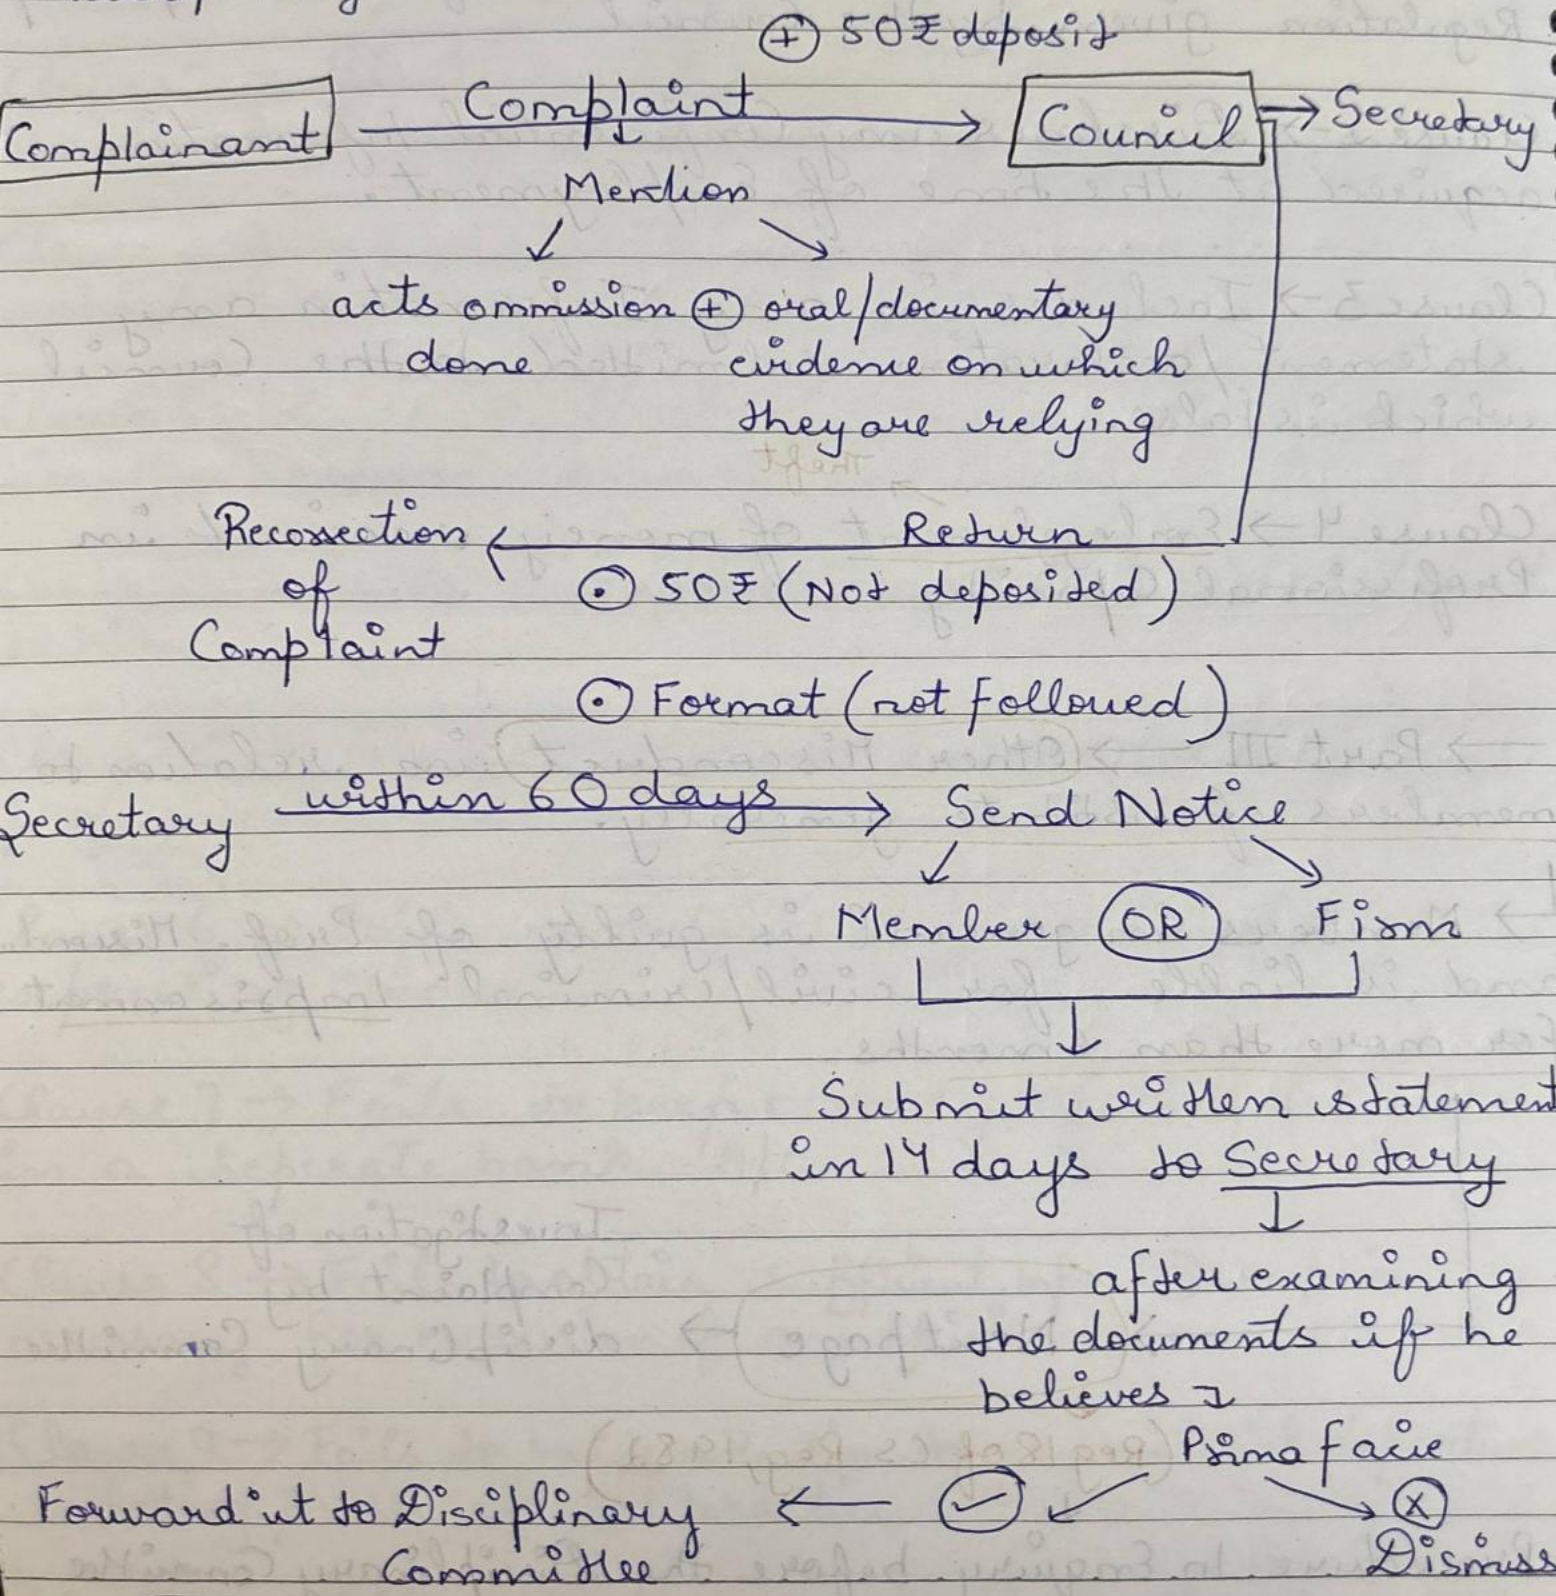 ⊕ 50₹ deposit
Complainant Complaint → Council → Secretary
↓
Mention
↙ ↘
acts ommission ⊕ oral/documentary
done evidence on which
they are relying
Recorrection ← Return
of ⊙ 50₹ (Not deposited)
Complaint
⊙ Format (not followed)
Secretary within 60 days → Send Notice
↙ ↘
Member OR Firm
↓
Submit written statement
in 14 days to Secretary
↓
after examining
the documents if he
believes ↴
Prima facie
Forward it to Disciplinary ← ✓ ↙ ↘ ⊗
Committee Dismiss